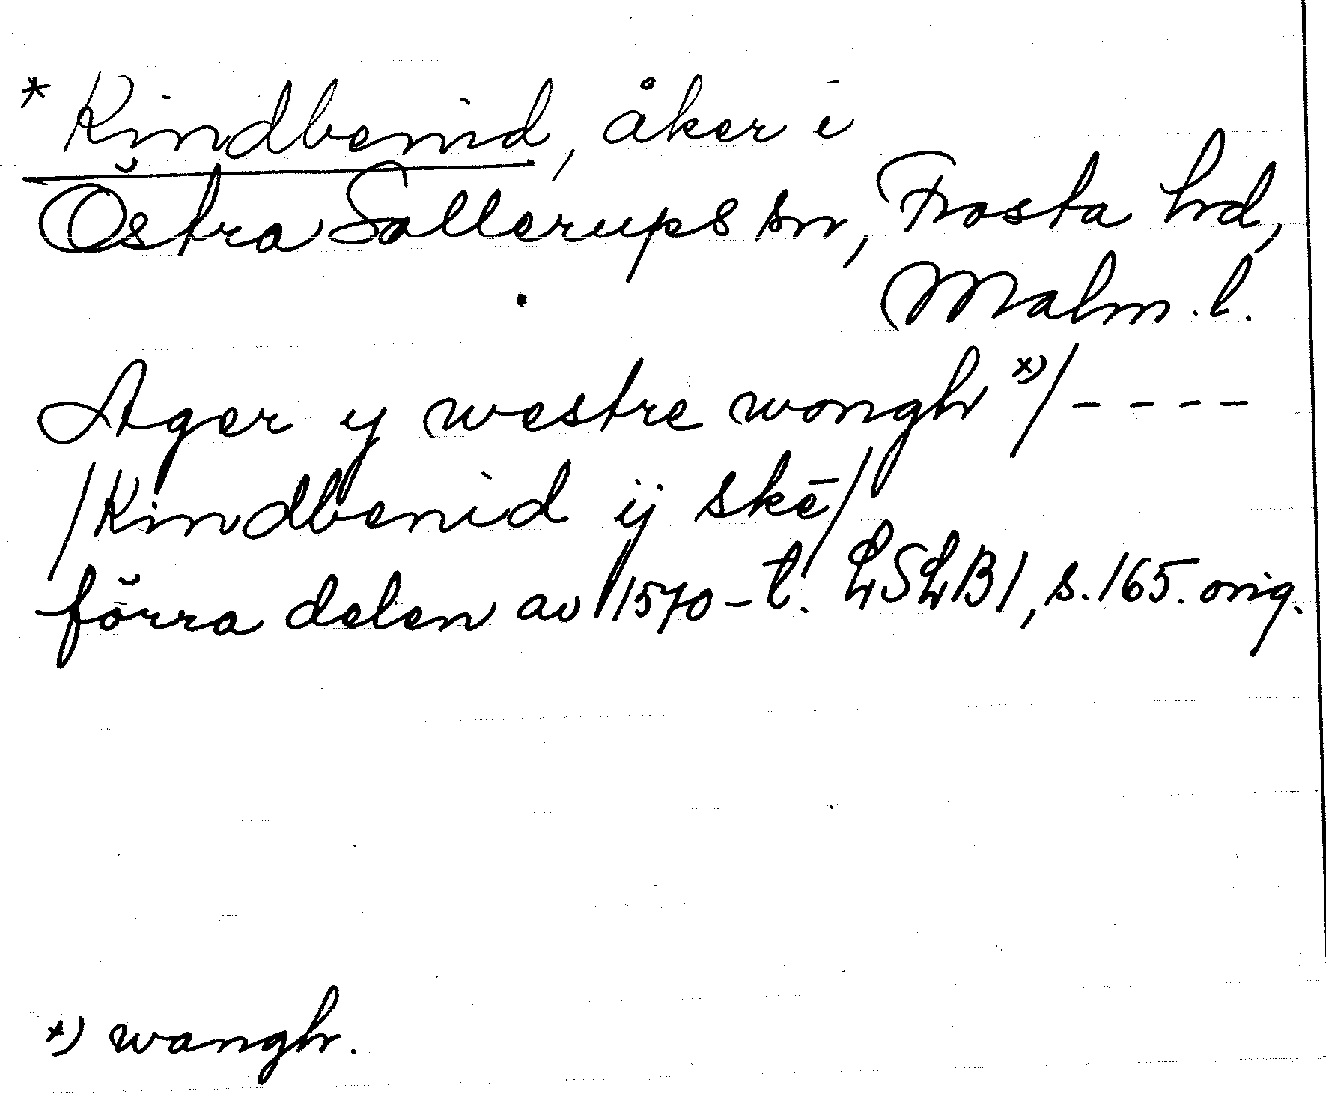 * Kindbenid, åker i
Östra Sallerups sn, Frosta hd,
Malm.l.
Ager y westre wongh *)/ - - - -
/Kindbenid ij skē/
förra delen av 1570-t. LSLB1, s. 165. orig.
*) wangh.